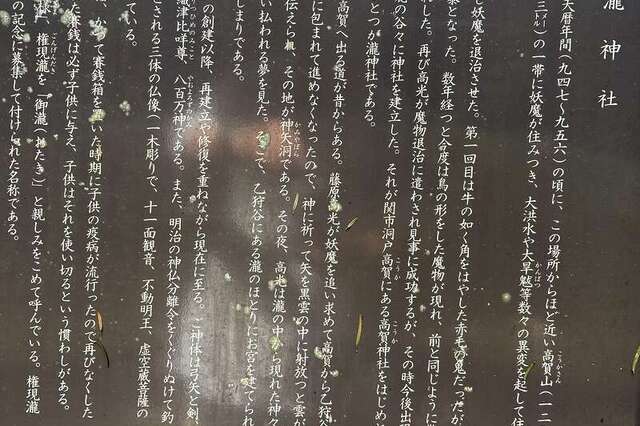 瀧神社
天暦年間(九四七～九五六)の頃に、この場所からほど近い高賀山(一二
三㍍)の一帯に妖魔が住みつき、大洪水や大旱魃等数々の異変を起して住
し妖魔を退治させた。第一回目は牛の如く角をはやした赤毛の鬼だったが
暴となった。数年経つと今度は鳥の形をした魔物が現れ、前と同じように
れた。再び高光が魔物退治に遣わされ見事に成功するが、その時今後出
の谷々に神社を建立した。それが関市洞戸高賀にある高賀神社をはじめと
とつが瀧神社である。
高賀へ出る道が昔からある。藤原高光が妖魔を追い求めて高賀から乙狩谷
に包まれて進めなくなったので、神に祈って矢を黒雲の中に射放つと雲が
伝えられ、その地が神矢洞である。その夜、高光は瀧の中から現れた神々
い払われる夢を見た。そこで、乙狩谷にある瀧のほとりにお宮を建てられ
しまりである。
の創建以降、再建立や修復を重ねながら現在に至る。ご神体は弓矢と剣、
織津比咩尊、八百万神である。また、明治の神仏分離令をくぐりぬけて釣
される三体の仏像(一木彫りで、十一面観音、不動明王、虚空蔵菩薩の
ている。
、かつて賽銭箱を置いた時期に子供の疫病が流行ったので再びなくした
た賽銭は必ず子供に与え、子供はそれを使い切るという慣わしがある。
様、権現瀧を「御瀧(おたき)」と親しみをこめて呼んでいる。権現瀧
の記念に募集して付けられた名称である。